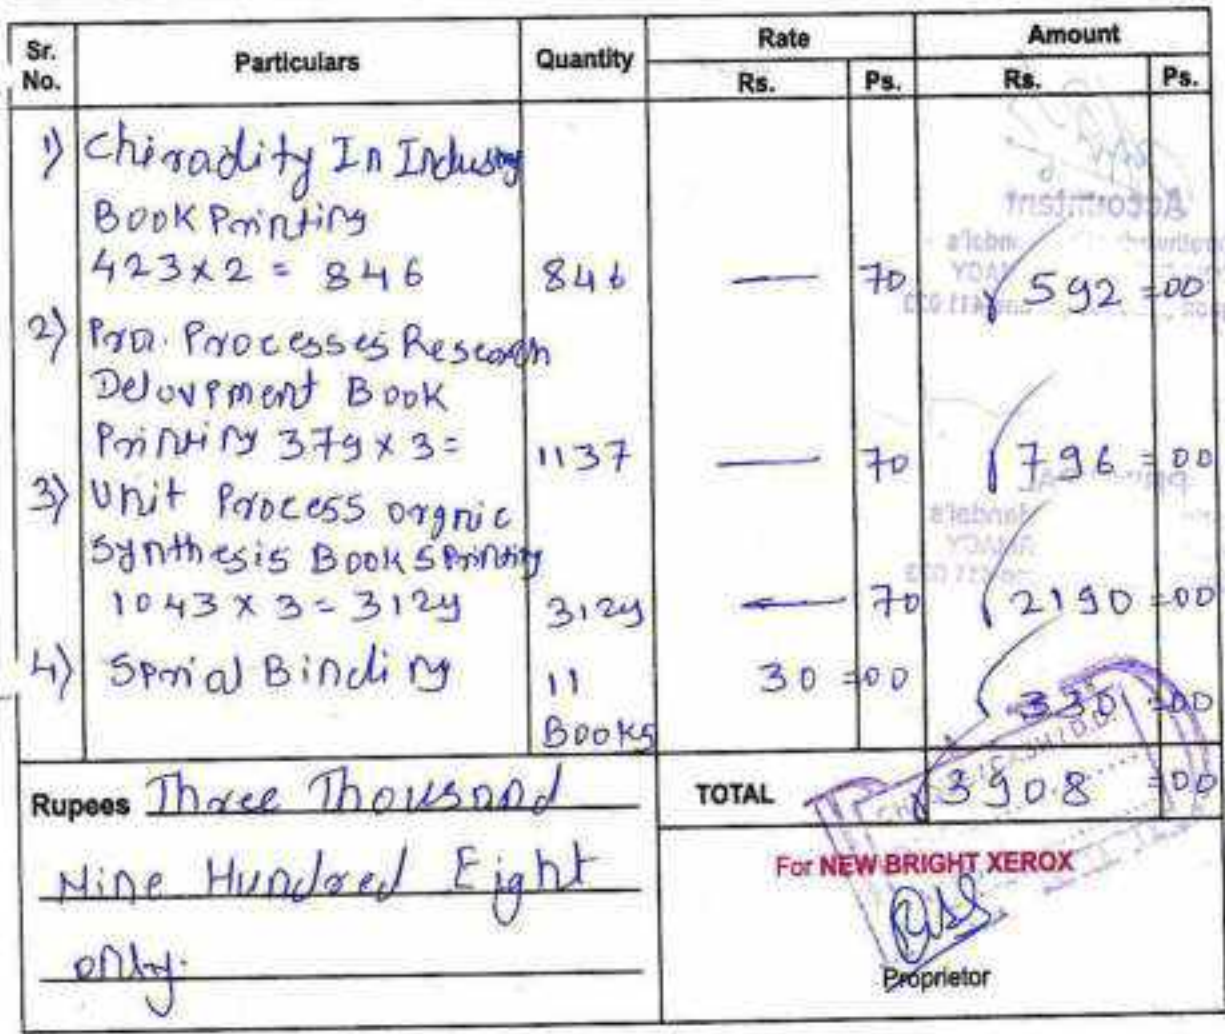 Sr. No. Particulars Quantity Rate Amount
Rs. Ps. Rs. Ps.
1) Chiradity In Industry
Book Printing
423 x 2 = 846 846 — 70 592 =00
2) Pra. Processes Research
Delovpment Book
Printing 379 x 3 = 1137 — 70 796 =00
3) Unit Process orgnic
Synthesis Books Printing
1043 x 3 = 3129 3129 — 70 2190 =00
4) Sprial Binding 11 30 =00 330 =00
Books
Rupees Three Thousand TOTAL 3908 =00
Nine Hundred Eight
only.
For NEW BRIGHT XEROX
Proprietor
Accountant